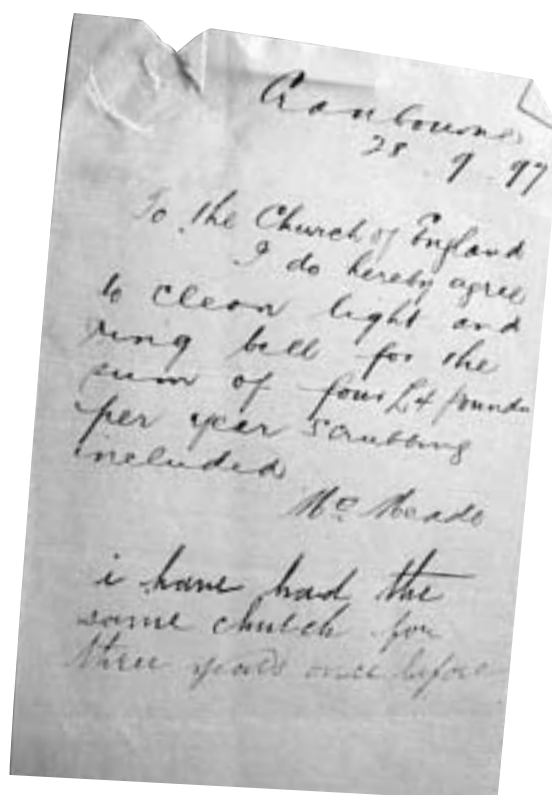 Cranbourne
28 . 9 . 97
To the Church of England
I do hereby agree
to clean light and
ring bell for the
sum of four £4 pounds
per year Scrubbing
included
Meade
i have had the
same church for
three years once before